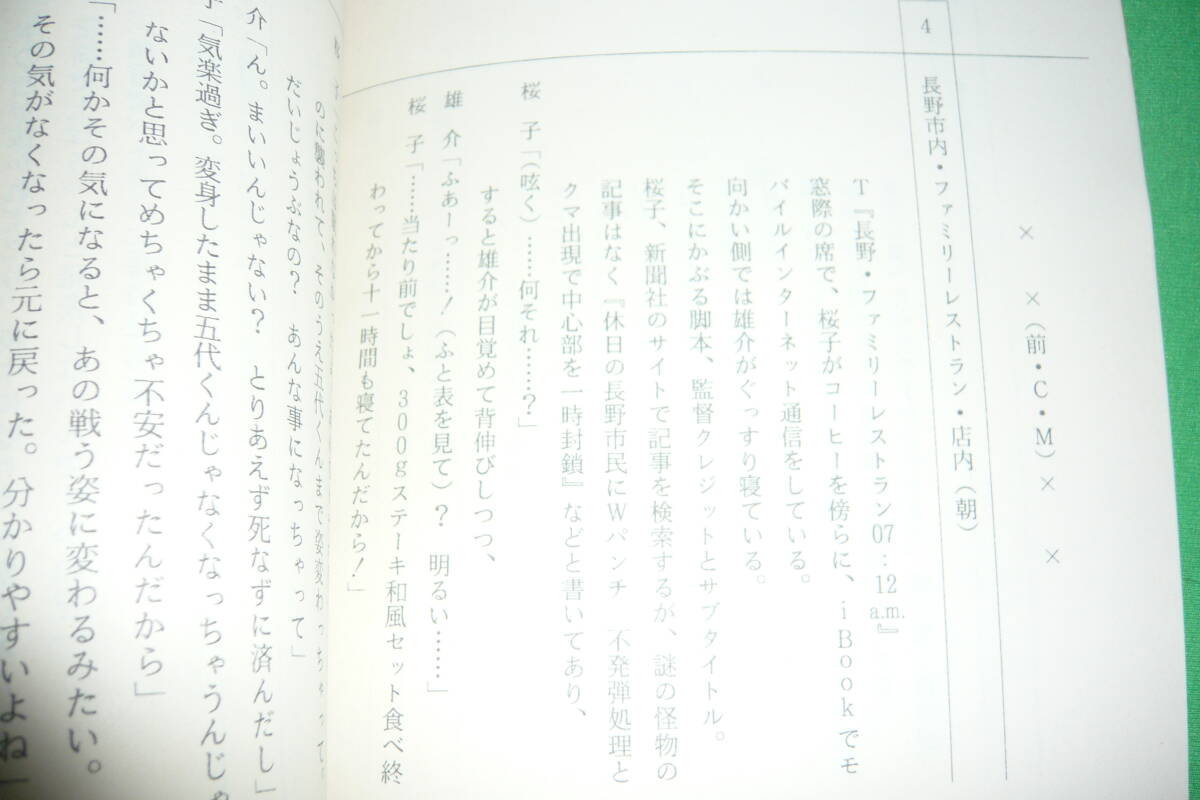 ×　×（前・C・M）×　×
4　長野市内・ファミリーレストラン・店内（朝）
T『長野・ファミリーレストラン07：12a.m.』
窓際の席で、桜子がコーヒーを傍らに、iBookでモ
バイルインターネット通信をしている。
向かい側では雄介がぐっすり寝ている。
そこにかぶる脚本、監督クレジットとサブタイトル。
桜子、新聞社のサイトで記事を検索するが、謎の怪物の
記事はなく『休日の長野市民にWパンチ　不発弾処理と
クマ出現で中心部を一時封鎖』などと書いてあり、
桜　子「（呟く）……何それ………？」
すると雄介が目覚めて背伸びしつつ、
雄　介「ふあーっ……！（ふと表を見て）？　明るい……」
桜　子「……当たり前でしょ、300gステーキ和風セット食べ終
わってから十一時間も寝てたんだから！」
のに襲われて、そのうえ五代くんまで姿変わっちゃって。
だいじょうぶなの？　あんな事になっちゃって」
介「ん。まいいんじゃない？　とりあえず死なずに済んだし」
子「気楽過ぎ。変身したまま五代くんじゃなくなっちゃうんじゃ
ないかと思ってめちゃくちゃ不安だったんだから」
「……何かその気になると、あの戦う姿に変わるみたい。
その気がなくなったら元に戻った。分かりやすいよね」